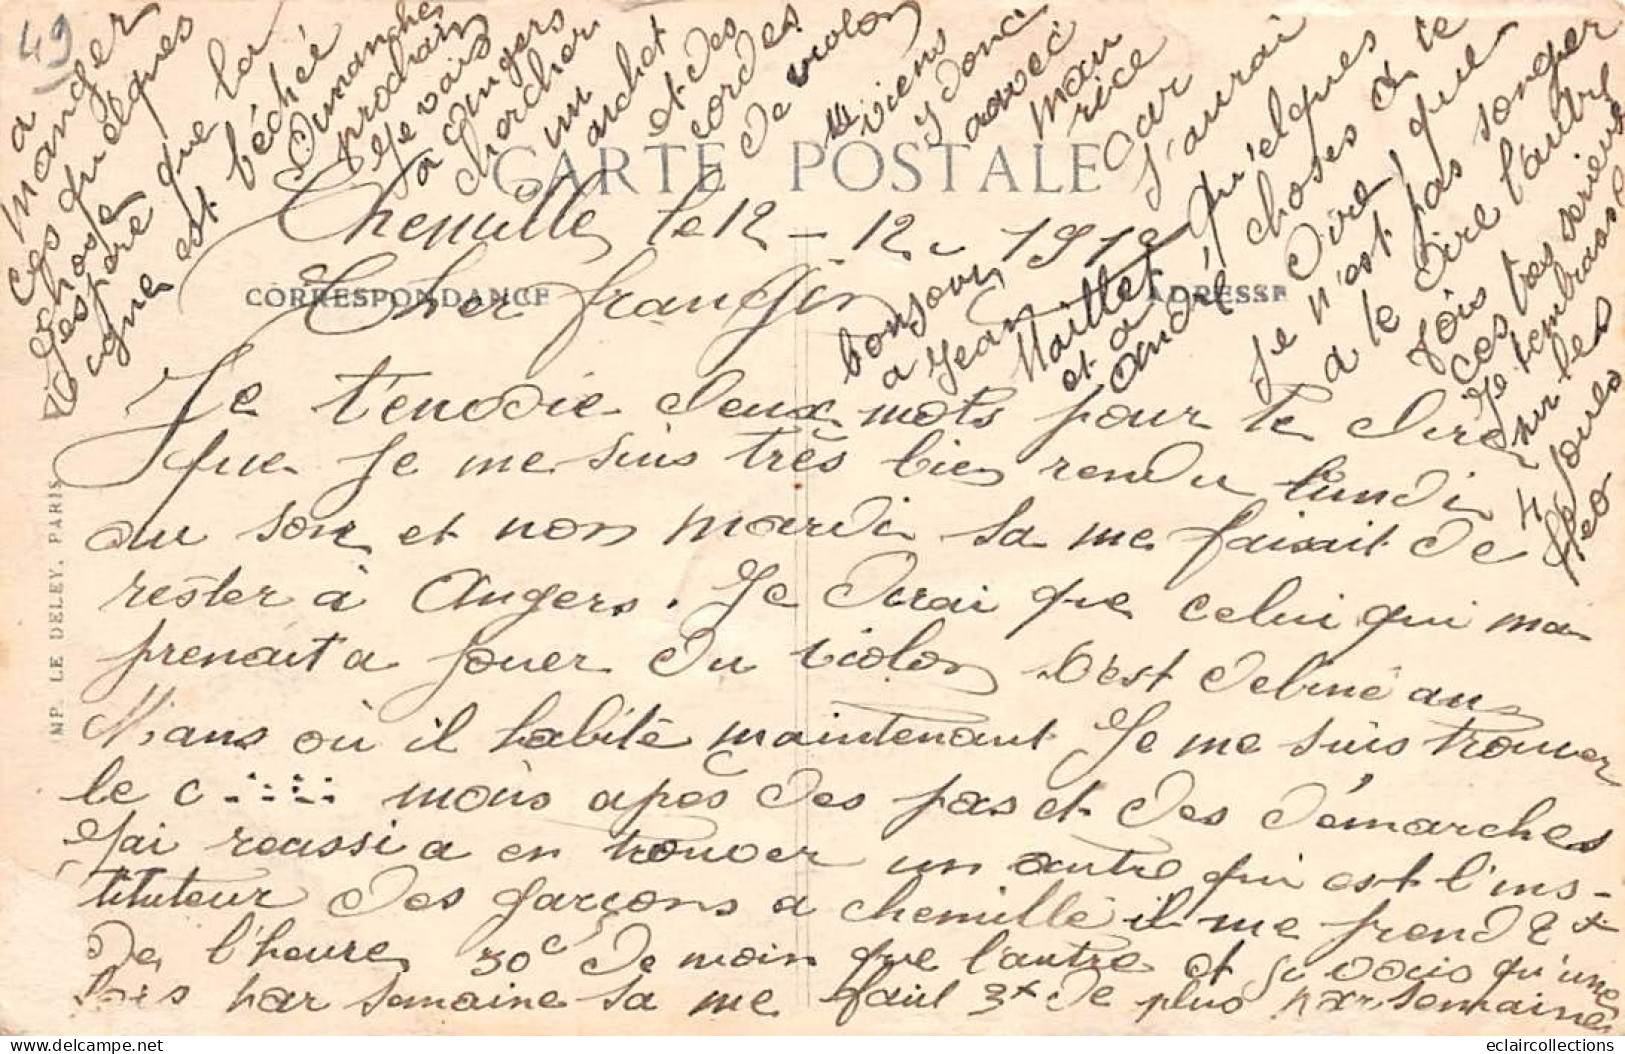 49
CARTE POSTALE
CORRESPONDANCE
ADRESSE
IMP. LE DELEY, PARIS
Chemillé, le 12 - 12 - 191
Cher frangin
Je t'envoie deux mots pour te dire
que je me suis très bien rendu lundi
au soir et non mardi sa me faisait de
rester à Angers. Je dirai que celui qui ma
prenait a jouer du violon s'est debiné au
Mans où il habite maintenant Je me suis trouver
le c ..:::: mois apès des pas et des démarches
j'ai reussi a en trouver un autre qui est l'ins-
tituteur des garçons a chemillé il me prend 2 f
de l'heure 50c de moin que l'autre et je vais qu'une
fois par semaine sa me fait 3 f de plus par semaine
bonjour
a Jean
Maillet
et a
André
J'espère que la
vigne est béchée
Dimanche
prochain
Je vais
a Angers
chercher
un
archet
et des
cordes
de violon
viens
y donc
avec
Mau
rice
Car
J'aurai
qu'elques
choses a te
dire, que
Je n'est pas songer
a te dire l'autre
fois
ces tres serieux
Je t'embrasse
sur les
4 joues
Léo
a
manger
ces quelques
chose